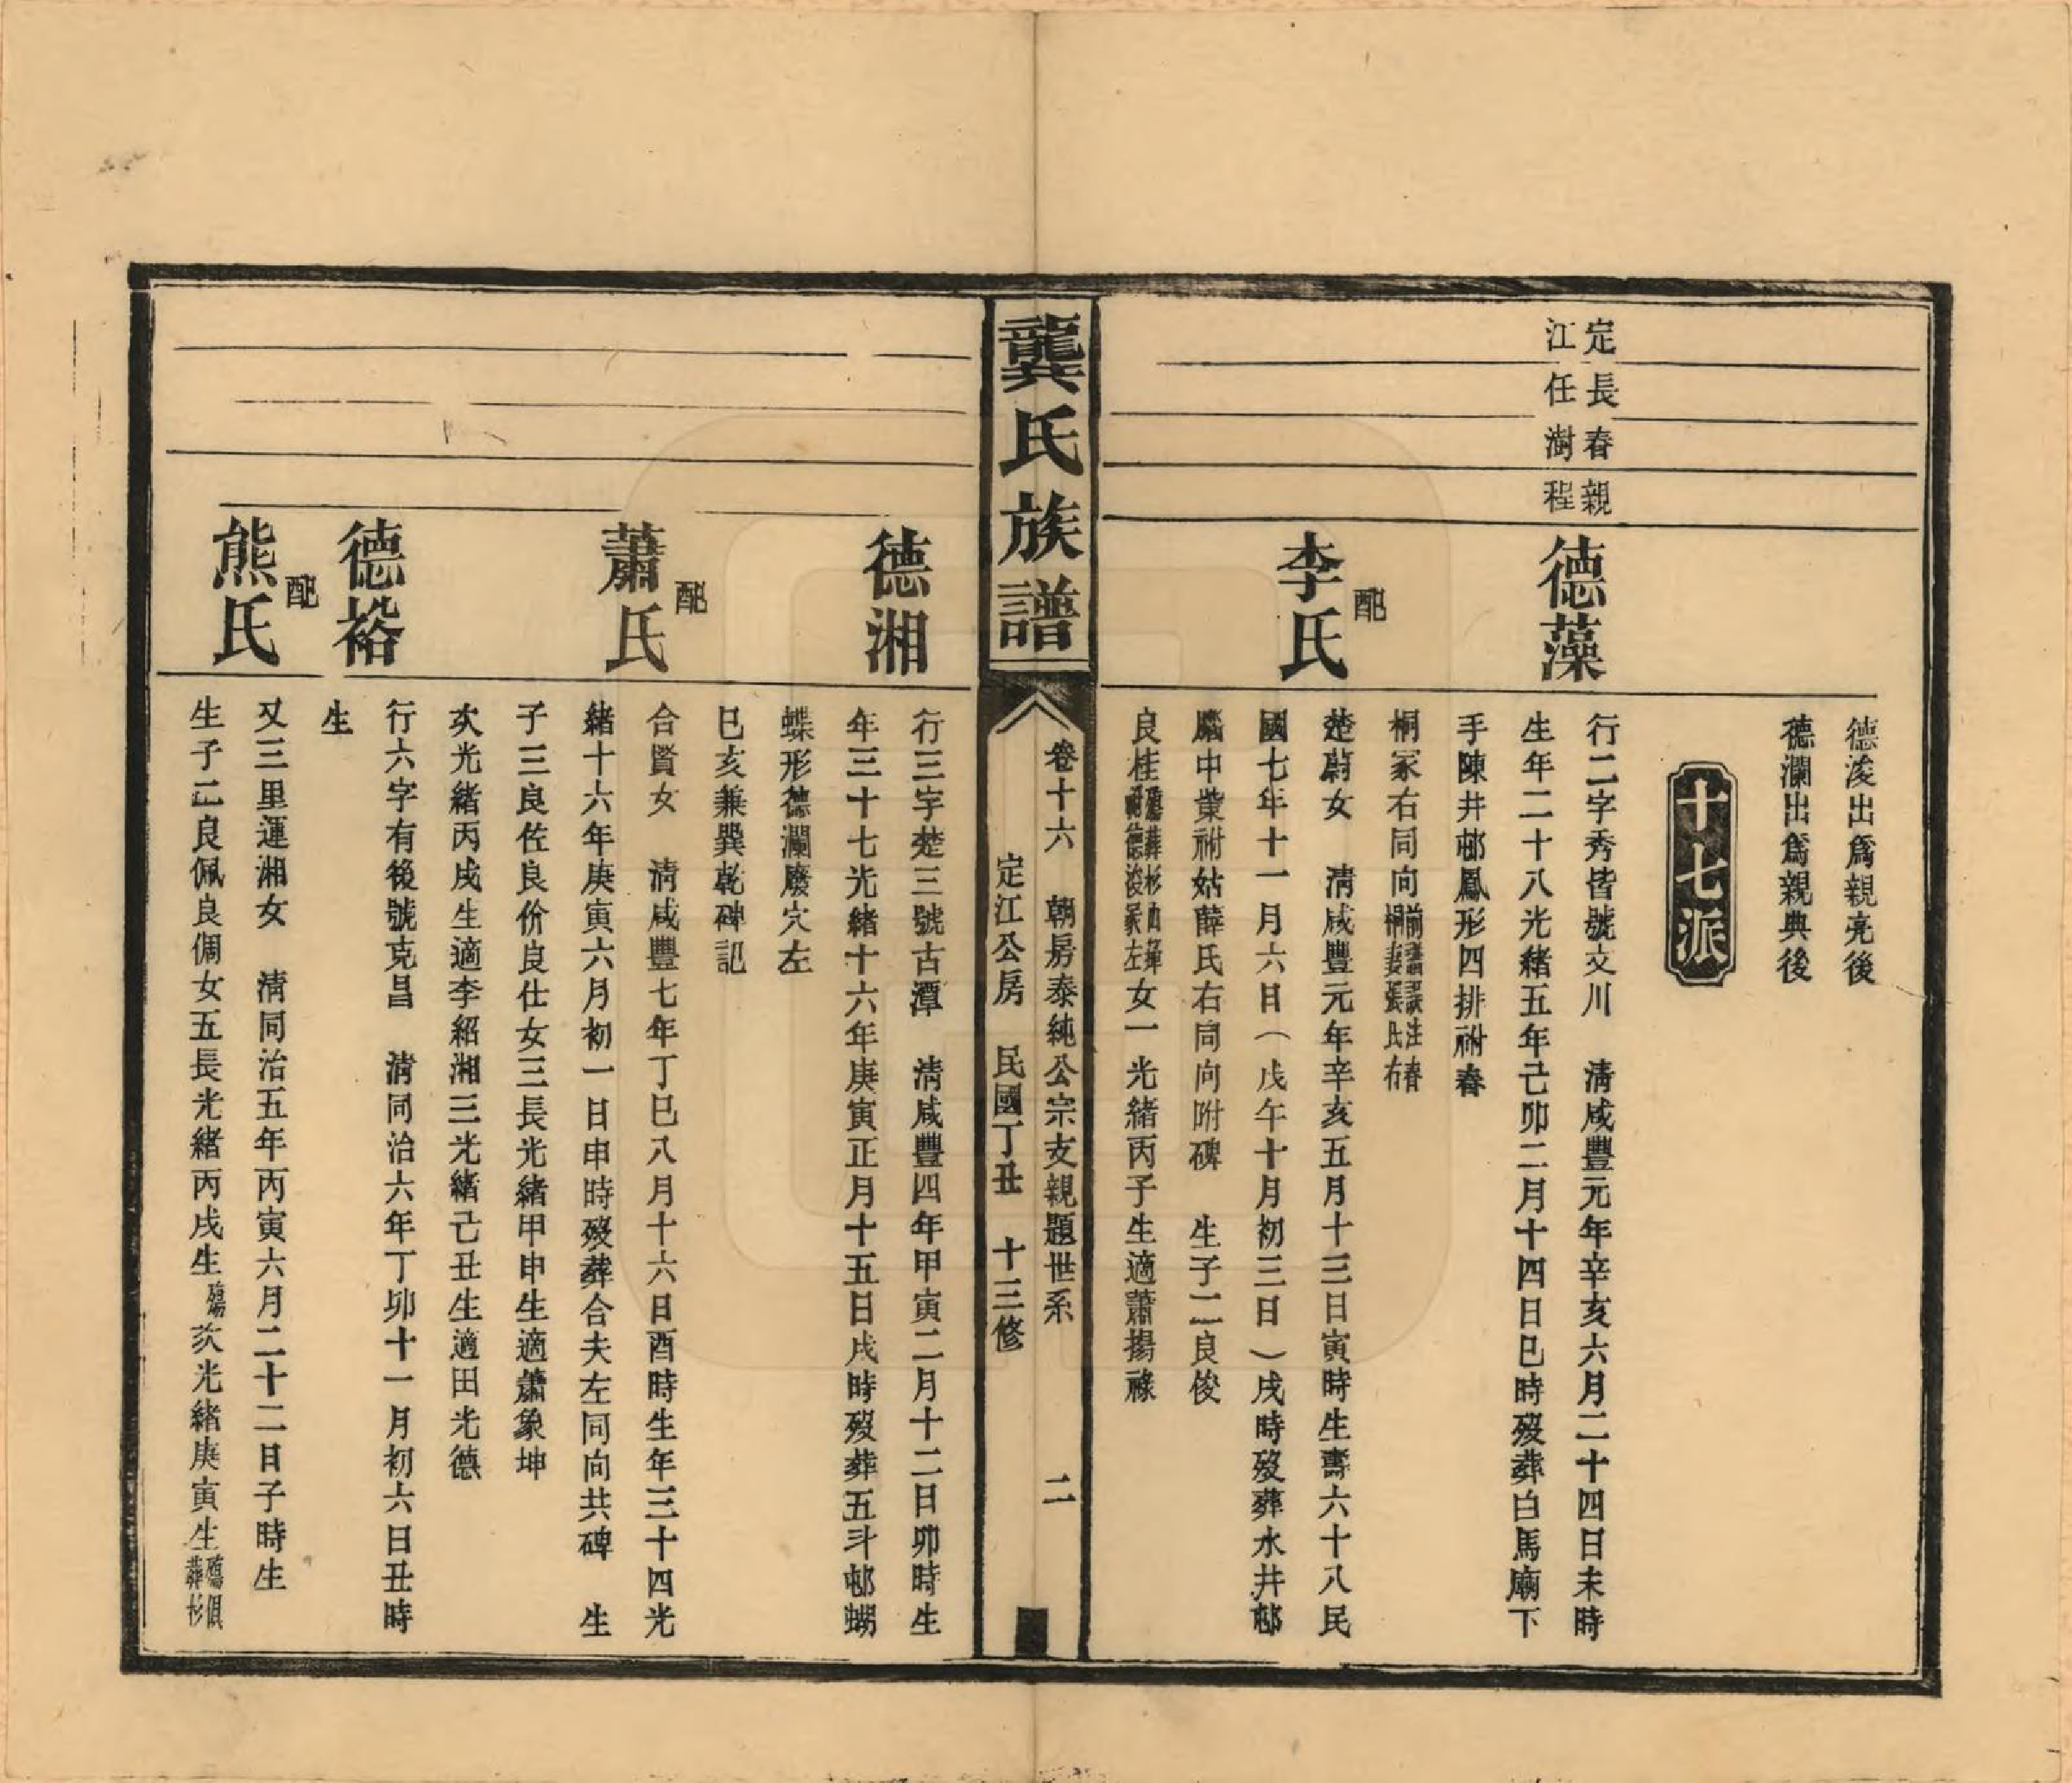 德浚出爲親亮後
德瀾出爲親典後
十七派
定長春親
江任澍程
德藻
行二字秀皆號文川　清咸豐元年辛亥六月二十四日未時
生年二十八光緒五年己卯二月十四日巳時歿葬白馬廟下
手陳井邨鳳形四排祔春
桐冢右同向
前譜誤注春
桐妻張氏右
配
李氏
楚蔚女　清咸豐元年辛亥五月十三日寅時生壽六十八民
國七年十一月六日（戊午十月初三日）戌時歿葬水井邨
中葉祔姑薛氏右同向附碑　生子二良俊
良桂
殤葬杉山
祔德浚冢左
女一光緒丙子生適蕭揚祿
龔氏族譜
卷十六　朝房泰純公宗支親題世系　二
定江公房　民國丁丑　十三修
德湘
行三字楚三號古潭　清咸豐四年甲寅二月十二日卯時生
年三十七光緒十六年庚寅正月十五日戌時歿葬五斗邨蝴
蝶形德瀾廢穴左
巳亥兼巽乾碑記
配
蕭氏
合賢女　清咸豐七年丁巳八月十六日酉時生年三十四光
緒十六年庚寅六月初一日申時歿葬合夫左同向共碑　生
子三良佐良价良仕女三長光緒甲申生適蕭象坤
次光緒丙戌生適李紹湘三光緒己丑生適田光德
德裕
行六字有後號克昌　清同治六年丁卯十一月初六日丑時
生
配
熊氏
又三里運湘女　清同治五年丙寅六月二十二日子時生
生子二良佩良倜女五長光緒丙戌生殤次光緒庚寅生
殤俱
葬杉